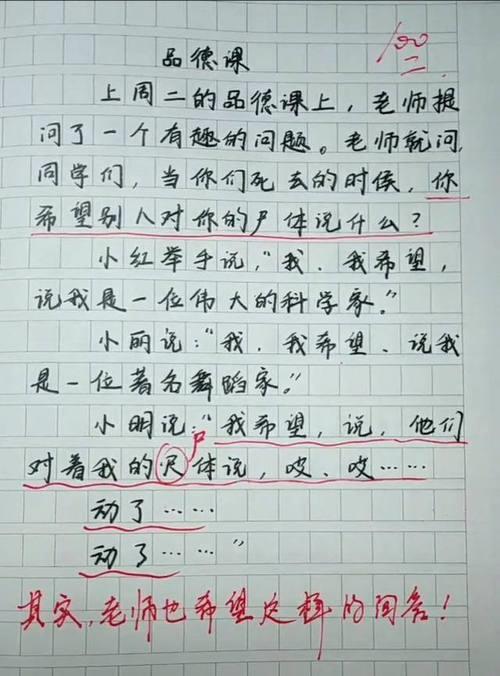 100
品德课
上周二的品德课上，老师提
问了一个有趣的问题。老师就问，
同学们，当你们死去的时候，你
希望别人对你的尸体说什么？
小红举手说，“我、我希望，
说我是一位伟大的科学家。”
小丽说：“我．我希望、说我
是一位著名舞蹈家。”
小明说：“我希望，说，他们
尸
对着我的尺体说，哎、哎……
动了……
动了……”
其实，老师也希望这样的回答！